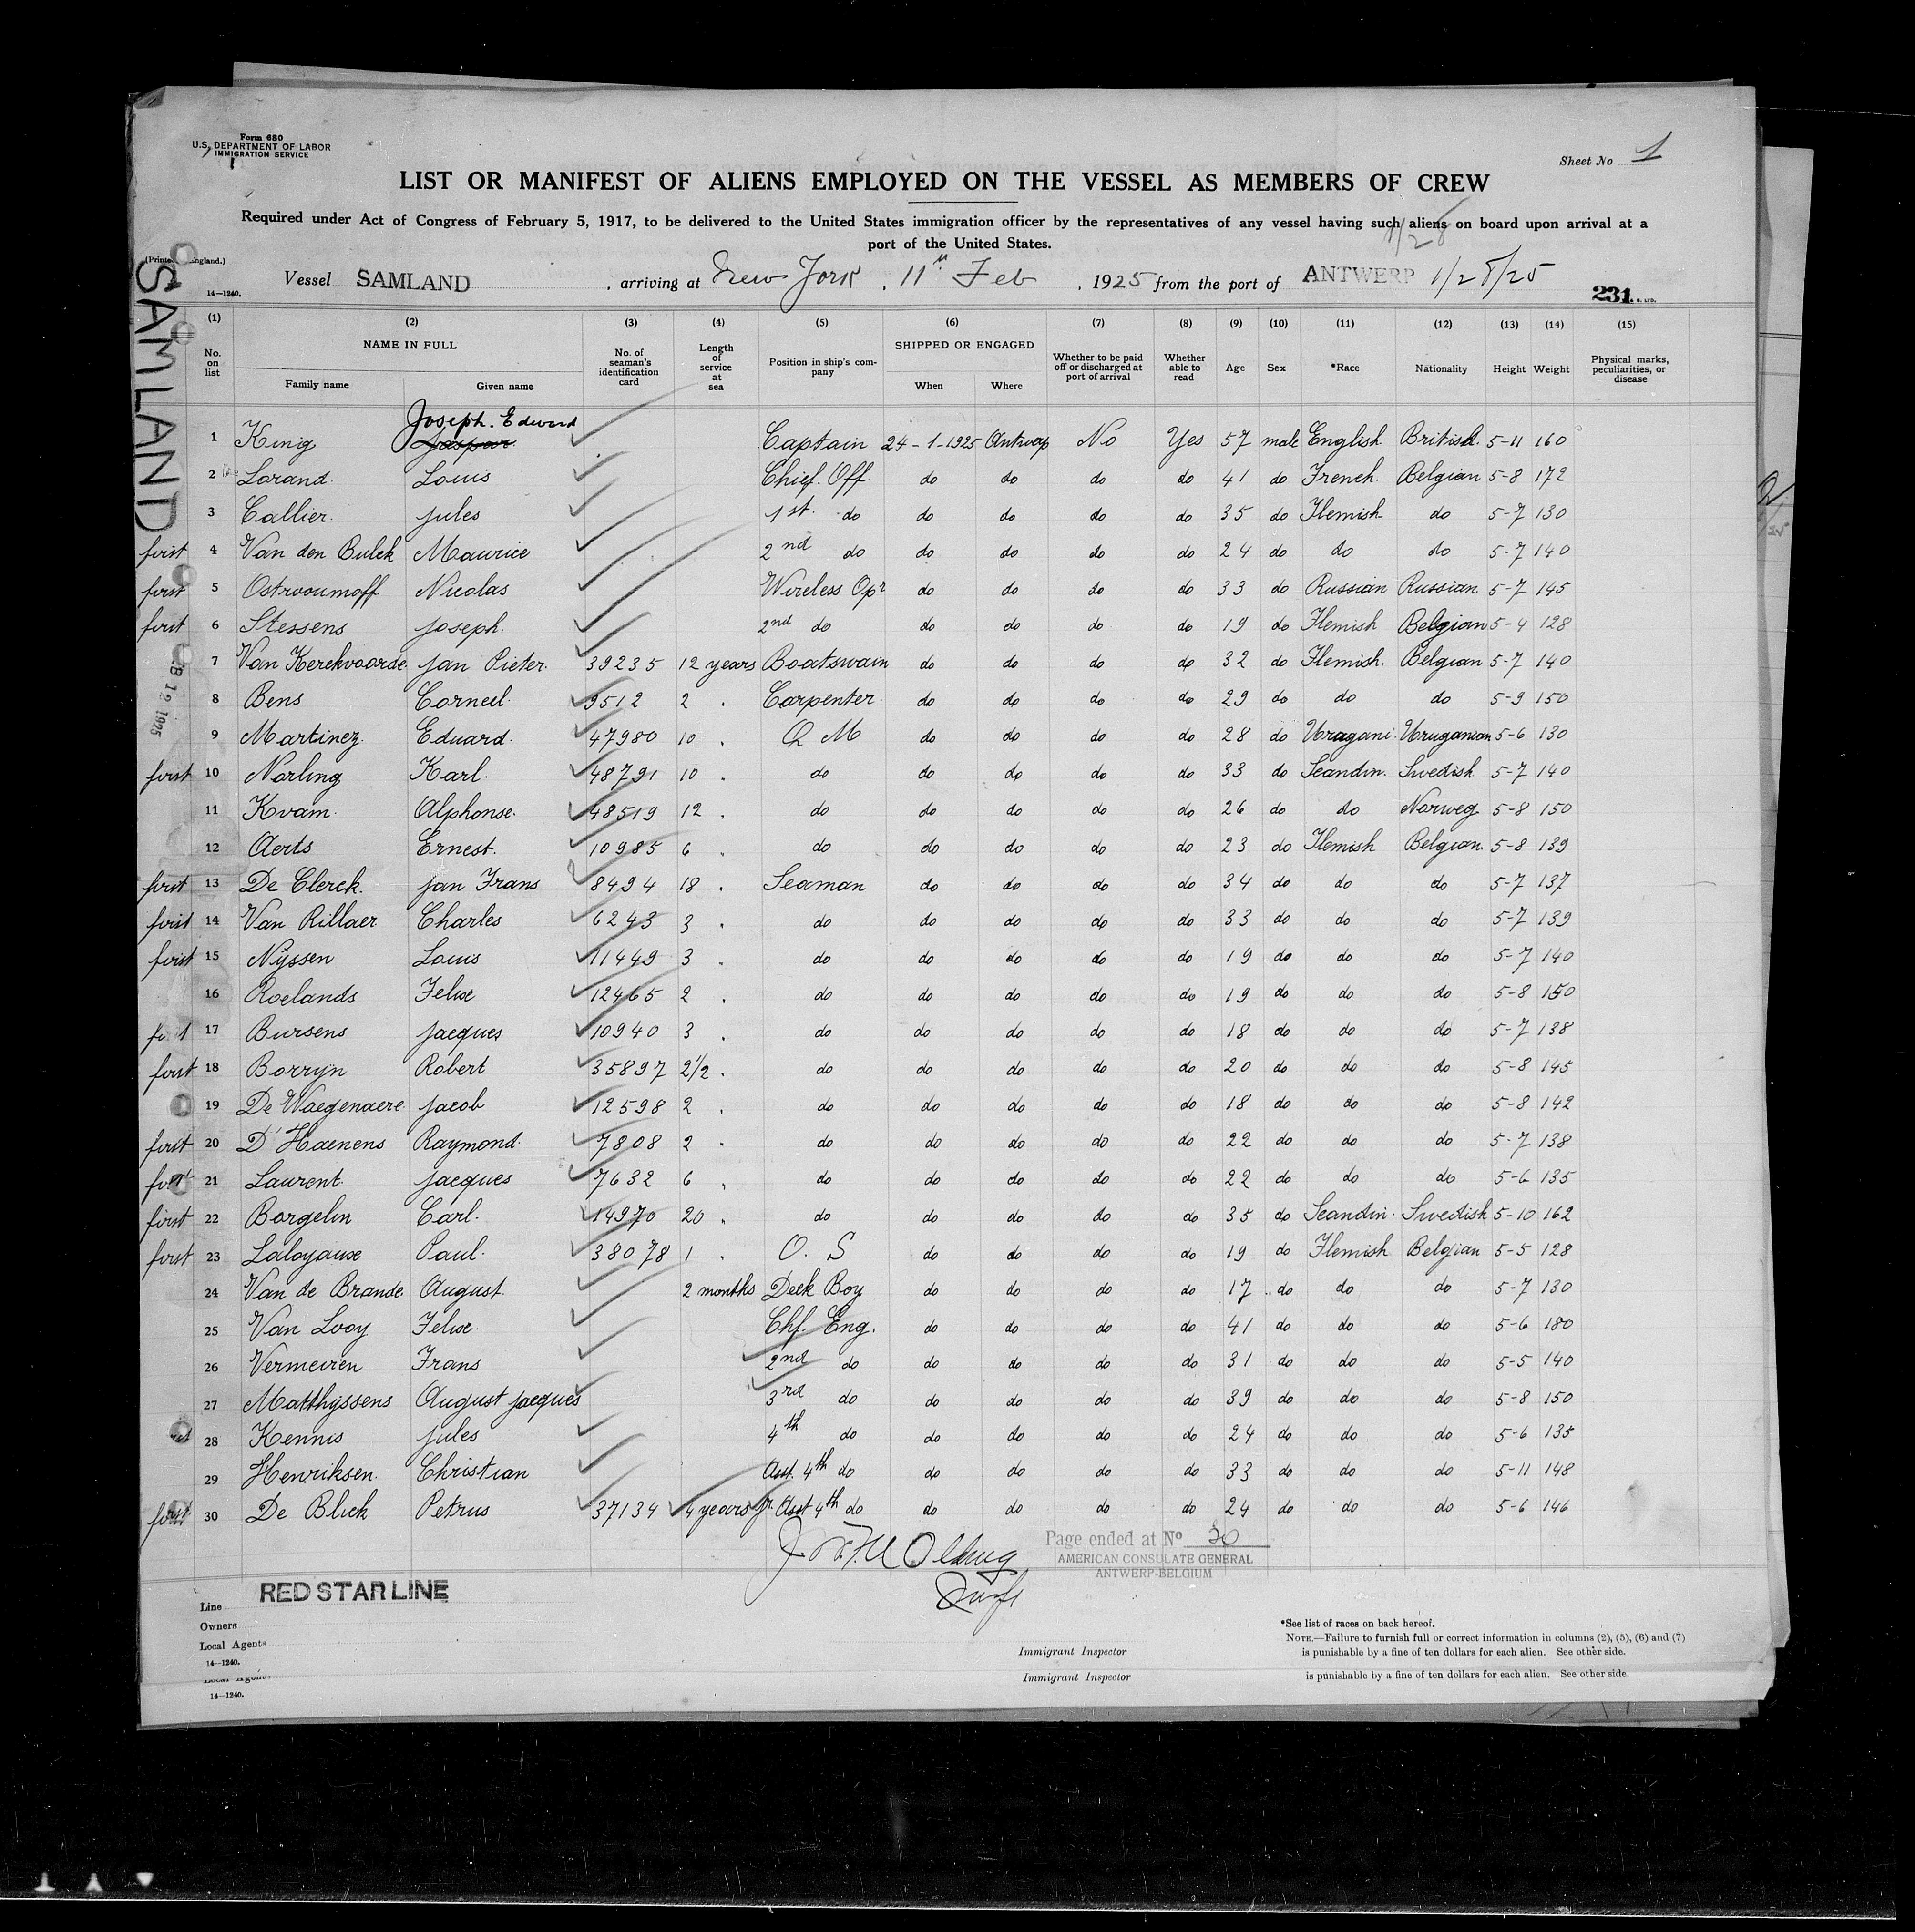 Form 680
U.S. DEPARTMENT OF LABOR
IMMIGRATION SERVICE
Sheet No 1
LIST OR MANIFEST OF ALIENS EMPLOYED ON THE VESSEL AS MEMBERS OF CREW
Required under Act of Congress of February 5, 1917, to be delivered to the United States immigration officer by the representatives of any vessel having such aliens on board upon arrival at a
port of the United States.
1/28
SAMLAND
Vessel SAMLAND, arriving at New York, 11th Feb, 1925 from the port of ANTWERP 1/28/25
14—1240.
231
(1) (2) (3) (4) (5) (6) (7) (8) (9) (10) (11) (12) (13) (14) (15)
No. on list NAME IN FULL Family name Given name No. of seaman's identification card Length of service at sea Position in ship's company SHIPPED OR ENGAGED When Where Whether to be paid off or discharged at port of arrival Whether able to read Age Sex *Race Nationality Height Weight Physical marks, peculiarities, or disease
Joseph. Edward
1 King Jaspar Captain 24-1-1925 Antwerp No Yes 57 male English British 5-11 160
2 Lorand Louis Chief. Off. do do do do 41 do French. Belgian 5-8 172
3 Callier Jules 1st. do do do do do 35 do Flemish do 5-7 130
first 4 Van den Bulck Maurice 2nd do do do do do 24 do do do 5-7 140
first 5 Ostrooumoff Nicolas Wireless Opr do do do do 33 do Russian Russian 5-7 145
first 6 Stessens Joseph. 2nd do do do do do 19 do Flemish Belgian 5-4 128
7 Van Kerckvoorde Jan Pieter. 39235 12 years Boatswain do do do do 32 do Flemish. Belgian 5-7 140
8 Bens Corneel. 9512 2 Carpenter do do do do 29 do do do 5-9 150
9 Martinez Eduard. 47980 10 Q M do do do do 28 do Uragani Uruganian 5-6 130
first 10 Norling Karl. 48791 10 do do do do do 33 do Scandin. Swedish 5-7 140
11 Kvam Alphonse. 48519 12 do do do do do 26 do do Norweg. 5-8 150
12 Aerts Ernest. 10985 6 do do do do do 23 do Flemish Belgian 5-8 139
first 13 De Clerck. Jan Frans 8494 18 Seaman do do do do 34 do do do 5-7 137
first 14 Van Rillaer Charles 6243 3 do do do do do 33 do do do 5-7 139
first 15 Nijssen Louis 11449 3 do do do do do 19 do do do 5-7 140
16 Roelands Felix 12465 2 do do do do do 19 do do do 5-8 150
17 Bursens Jacques 10940 3 do do do do do 18 do do do 5-7 138
first 18 Borryn Robert 35897 2 1/2 do do do do do 20 do do do 5-8 145
19 De Waegenaere Jacob 12598 2 do do do do do 18 do do do 5-8 142
first 20 D'Haenens Raymond. 7808 2 do do do do do 22 do do do 5-7 138
first 21 Laurent Jacques 7632 6 do do do do do 22 do do do 5-6 135
first 22 Borgelin Carl. 14970 20 do do do do do 35 do Scandin. Swedish 5-10 162
first 23 Laloyaux Paul. 38078 1 O. S do do do do 19 do Flemish Belgian 5-5 128
24 Van de Brande August. 2 months Deck Boy do do do do 17 do do do 5-7 130
25 Van Looy Felix Chf. Eng. do do do do 41 do do do 5-6 180
26 Vermeiren Frans 2nd do do do do do 31 do do do 5-5 140
27 Matthyssens August Jacques 3rd do do do do do 39 do do do 5-8 150
28 Kennis Jules 4th do do do do do 24 do do do 5-6 135
29 Henriksen Christian Asst. 4th do do do do do 33 do do do 5-11 148
first 30 De Blick Petrus 37134 4 years Jr. Asst 4th do do do do do 24 do do do 5-6 146
Page ended at No 30
AMERICAN CONSULATE GENERAL
ANTWERP-BELGIUM
Line RED STAR LINE
Owners
Local Agents
14—1240.
Immigrant Inspector
*See list of races on back hereof.
NOTE.—Failure to furnish full or correct information in columns (2), (5), (6) and (7)
is punishable by a fine of ten dollars for each alien. See other side.
Immigrant Inspector
is punishable by a fine of ten dollars for each alien. See other side.
14—1240.